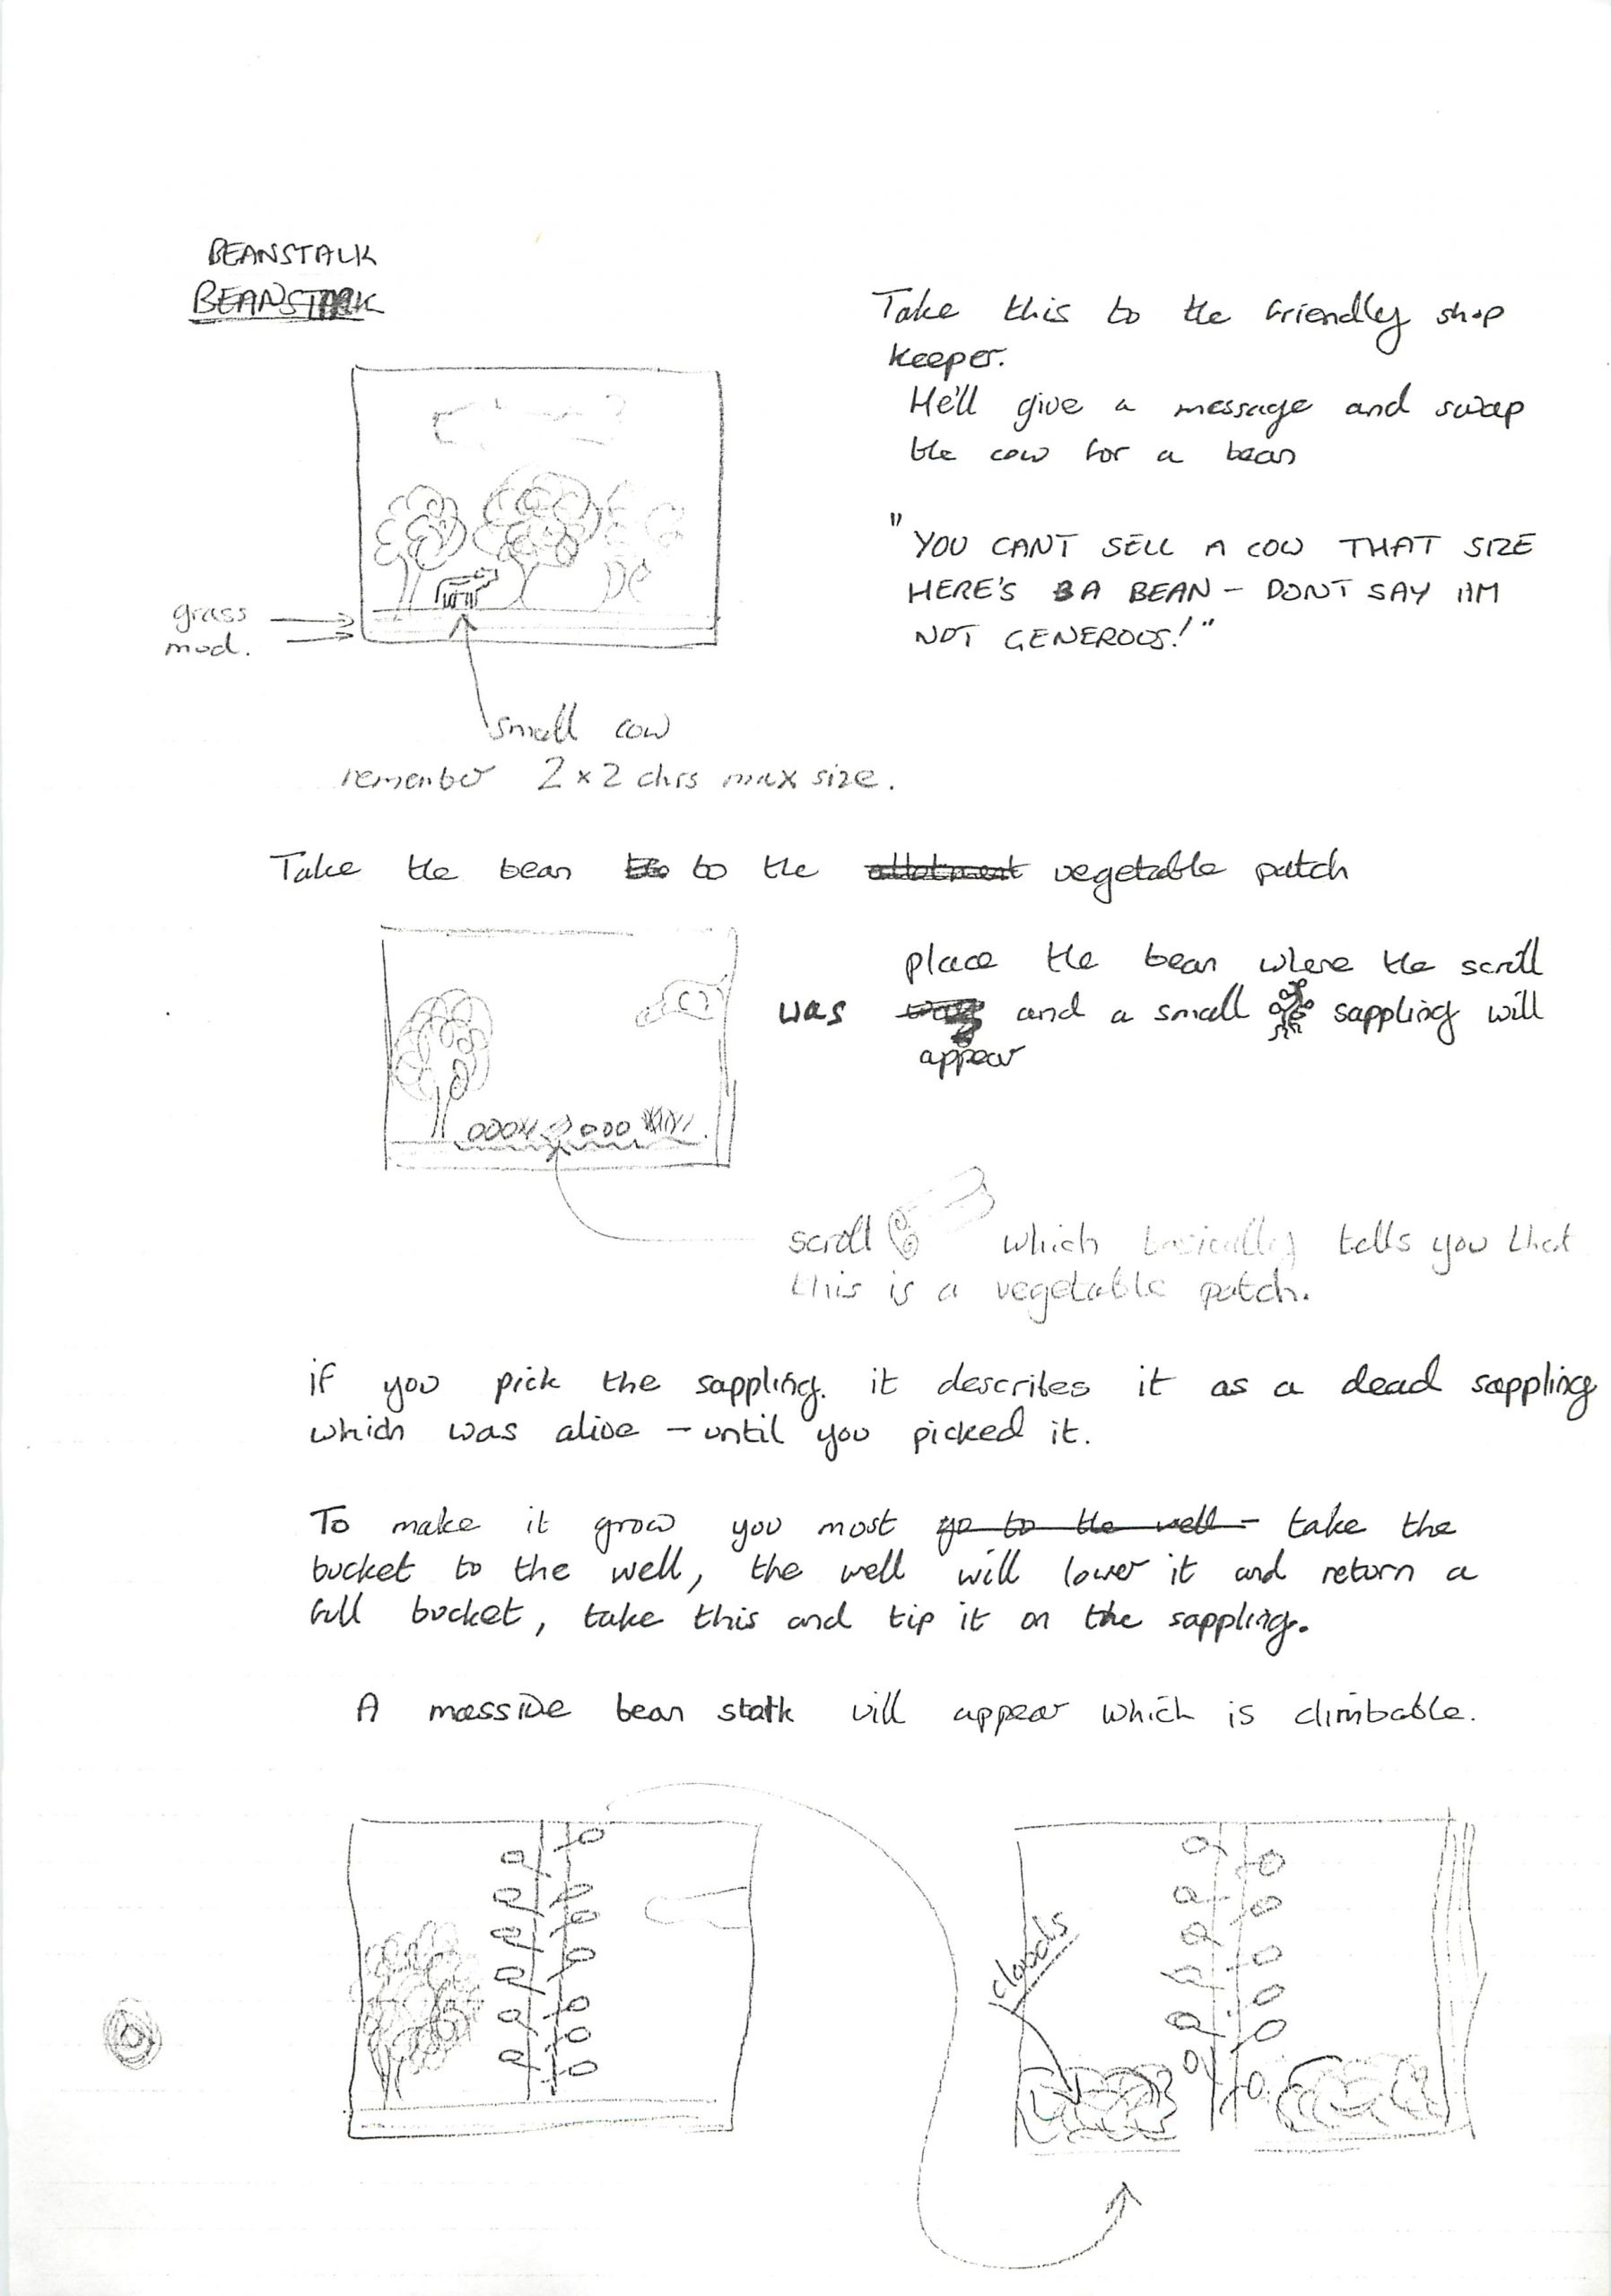 BEANSTALK
BEANSTALK
Take this to the friendly shop
keeper.
He'll give a message and swap
the cow for a bean
"YOU CANT SELL A COW THAT SIZE
HERE'S A BEAN - DONT SAY IIM
NOT GENEROUS!"
grass
mud.
small cow
remember 2 x 2 chrs max size.
Take the bean to the allotment vegetable patch
place the bean where the scroll
was and a small sappling will
appear
scroll which basically tells you that
this is a vegetable patch.
if you pick the sappling. it describes it as a dead sappling
which was alive - until you picked it.
To make it grow you must go to the well - take the
bucket to the well, the well will lower it and return a
full bucket, take this and tip it on the sappling.
A massive bean stalk will appear which is climbable.
clouds